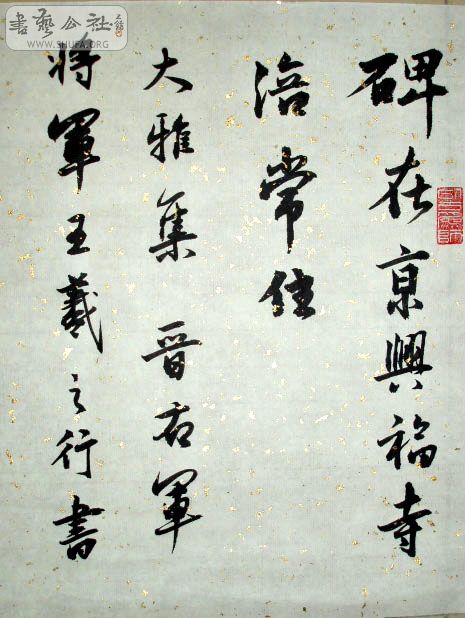 碑在京興福寺
涪常住
大雅集 晉右軍
將軍王羲之行書
書藝公社
WWW.SHUFA.ORG